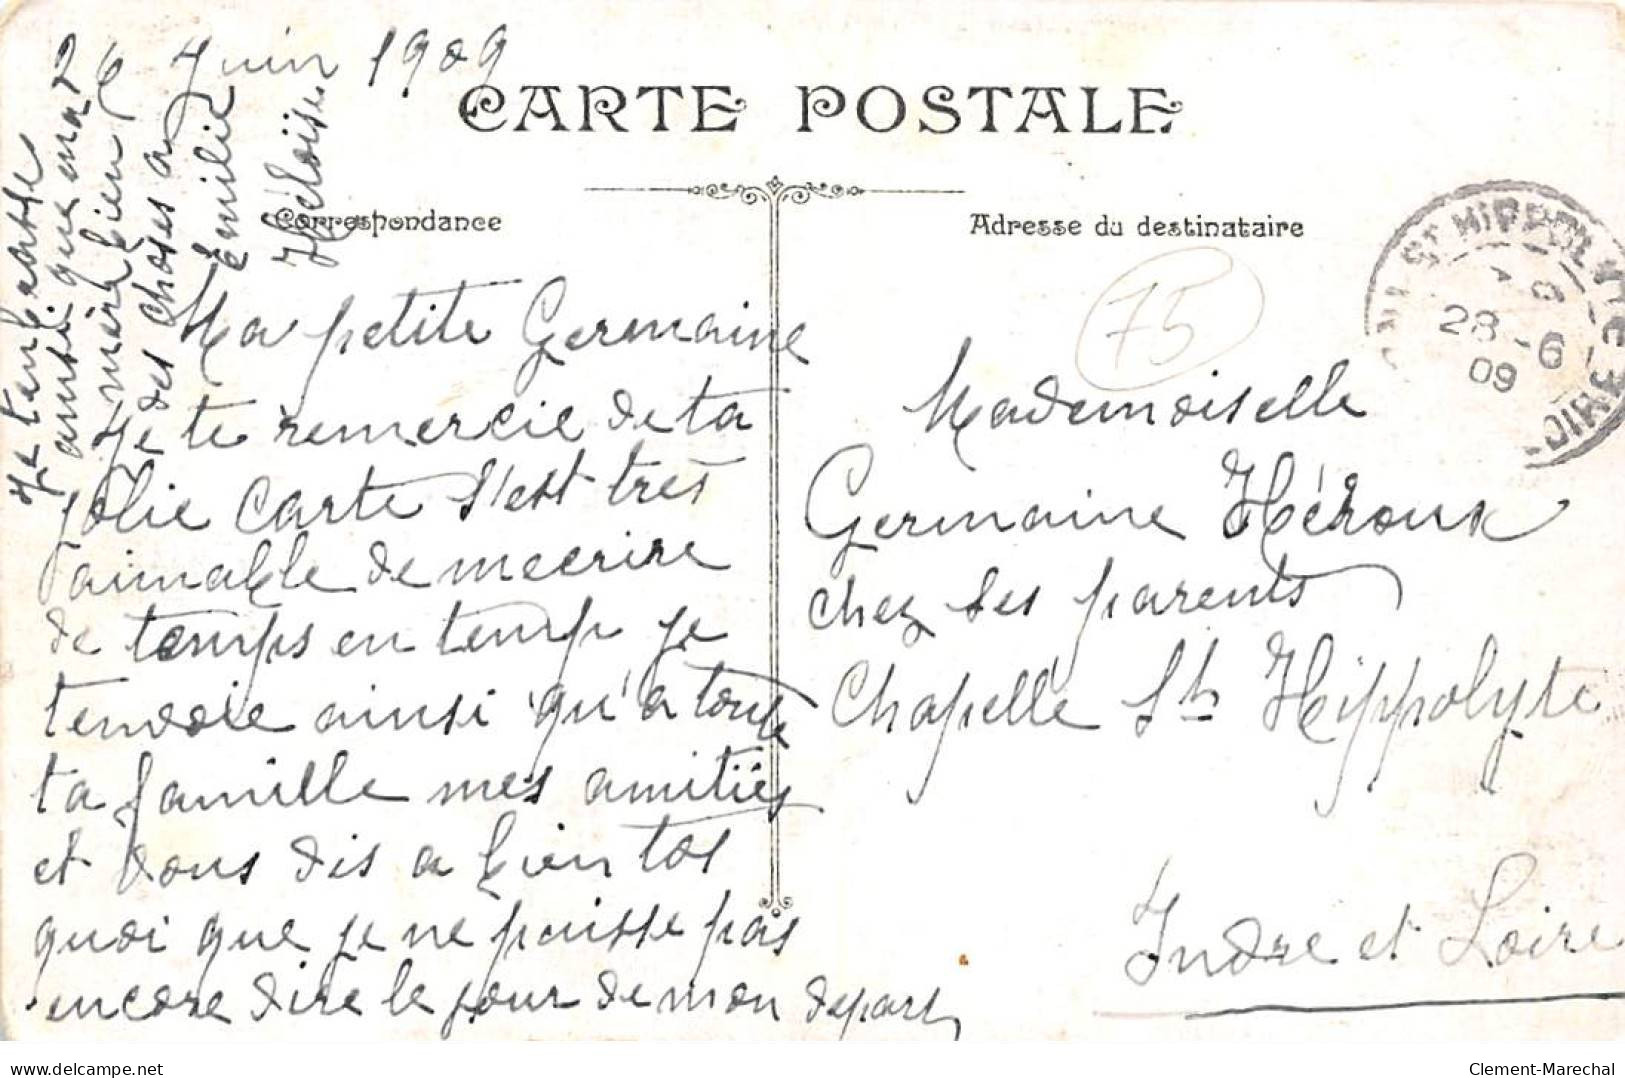 26 Juin 1909
CARTE POSTALE
Correspondance
Adresse du destinataire
Ma petite Germaine
Je te remercie de ta
jolie carte s'est très
aimable de mecrire
de temps en temp je
tenvoie ainsi qu'a toute
ta famille mes amitiés
et vous dis a bientot
quoi que je ne puisse pas
encore dire le jour de mon depart
Je tenbrasse
ainsi que ma
mère bien
des choses a
Emilie
Héloïse
75
St HIPPOLYTE
28-6
09
Mademoiselle
Germaine Héroux
chez ses parents
Chapelle St Hippolyte
Indre et Loire
www.delcampe.net
Clement-Marechal